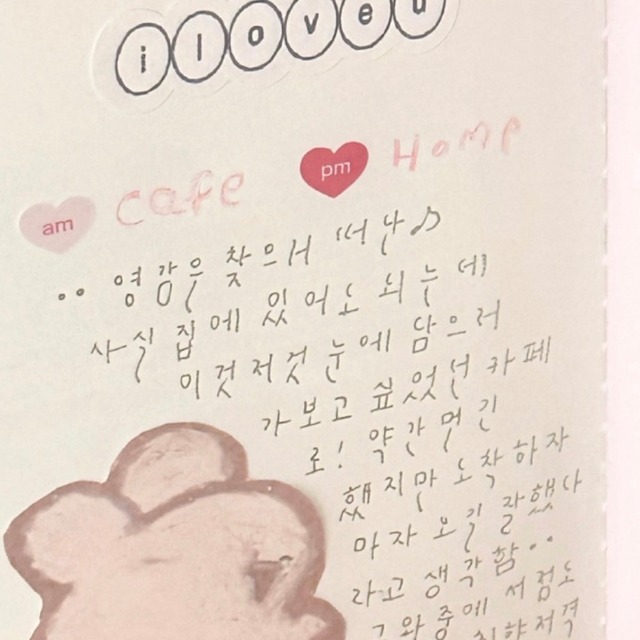 iloveu
am cafe pm Home
.. 영감을 찾으러 떠난♪
사실 집에 있어도 되는데
이것저것 눈에 담으러
가보고 싶었던 카페
로! 약간 멀긴
했지만 도착하자
마자 오길 잘했다
라고 생각함..
그 와중에 서점도
취향저격